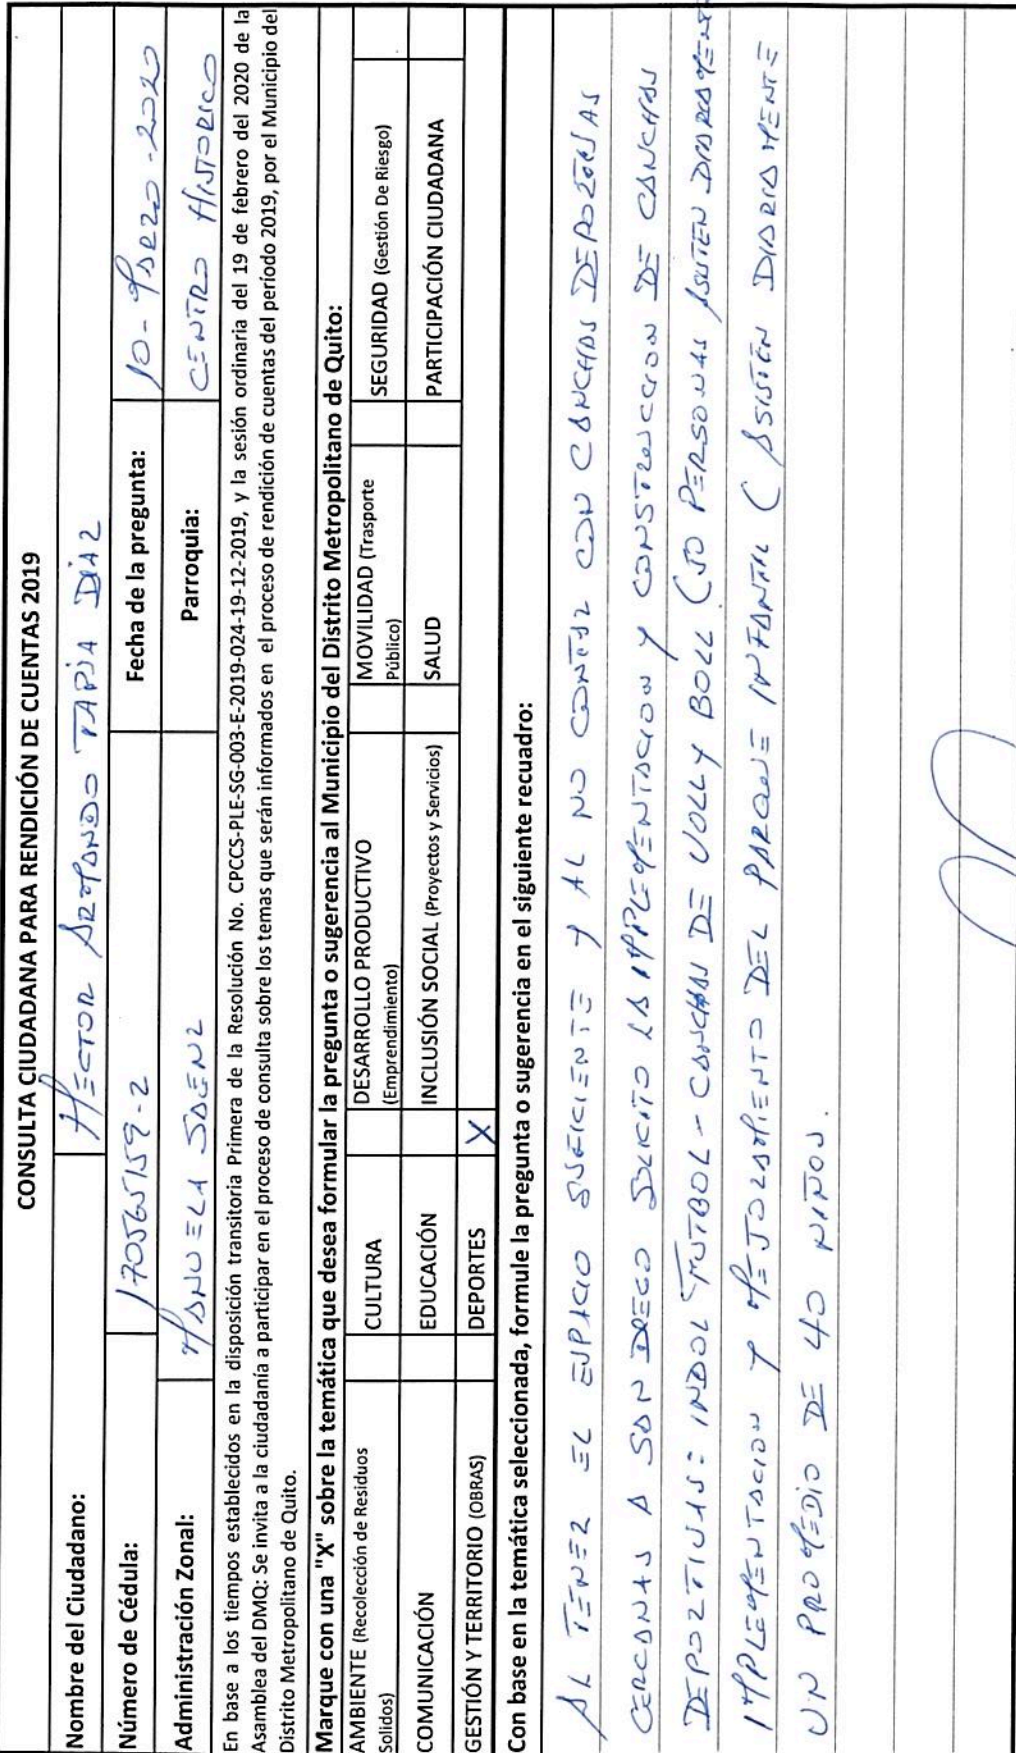 CONSULTA CIUDADANA PARA RENDICIÓN DE CUENTAS 2019
Nombre del Ciudadano: HECTOR ARMANDO TAPIA DIAZ
Número de Cédula: 170565159-2 Fecha de la pregunta: 10-MARZO-2020
Administración Zonal: MANUELA SAENZ Parroquia: CENTRO HISTORICO
En base a los tiempos establecidos en la disposición transitoria Primera de la Resolución No. CPCCS-PLE-SG-003-E-2019-024-19-12-2019, y la sesión ordinaria del 19 de febrero del 2020 de la
Asamblea del DMQ: Se invita a la ciudadanía a participar en el proceso de consulta sobre los temas que serán informados en el proceso de rendición de cuentas del período 2019, por el Municipio del
Distrito Metropolitano de Quito.
Marque con una "X" sobre la temática que desea formular la pregunta o sugerencia al Municipio del Distrito Metropolitano de Quito:
AMBIENTE (Recolección de Residuos Solidos) CULTURA DESARROLLO PRODUCTIVO (Emprendimiento) MOVILIDAD (Trasporte Público) SEGURIDAD (Gestión De Riesgo)
COMUNICACIÓN EDUCACIÓN INCLUSIÓN SOCIAL (Proyectos y Servicios) SALUD PARTICIPACIÓN CIUDADANA
GESTIÓN Y TERRITORIO (OBRAS) DEPORTES X
Con base en la temática seleccionada, formule la pregunta o sugerencia en el siguiente recuadro:
AL TENER EL ESPACIO SUFICIENTE Y AL NO CONTAR CON CANCHAS DEPORTIVAS
CERCANAS A SAN DIEGO SOLICITO LA IMPLEMENTACION Y CONSTRUCCION DE CANCHAS
DEPORTIVAS: INDOL FUTBOL - CANCHAS DE VOLLY BOLL (50 PERSONAS ASISTEN DIARAMENTE
IMPLEMENTACION Y MEJORAMIENTO DEL PARQUE INFANTIL (ASISTEN DIARIAMENTE
UN PROMEDIO DE 40 NIÑOS.